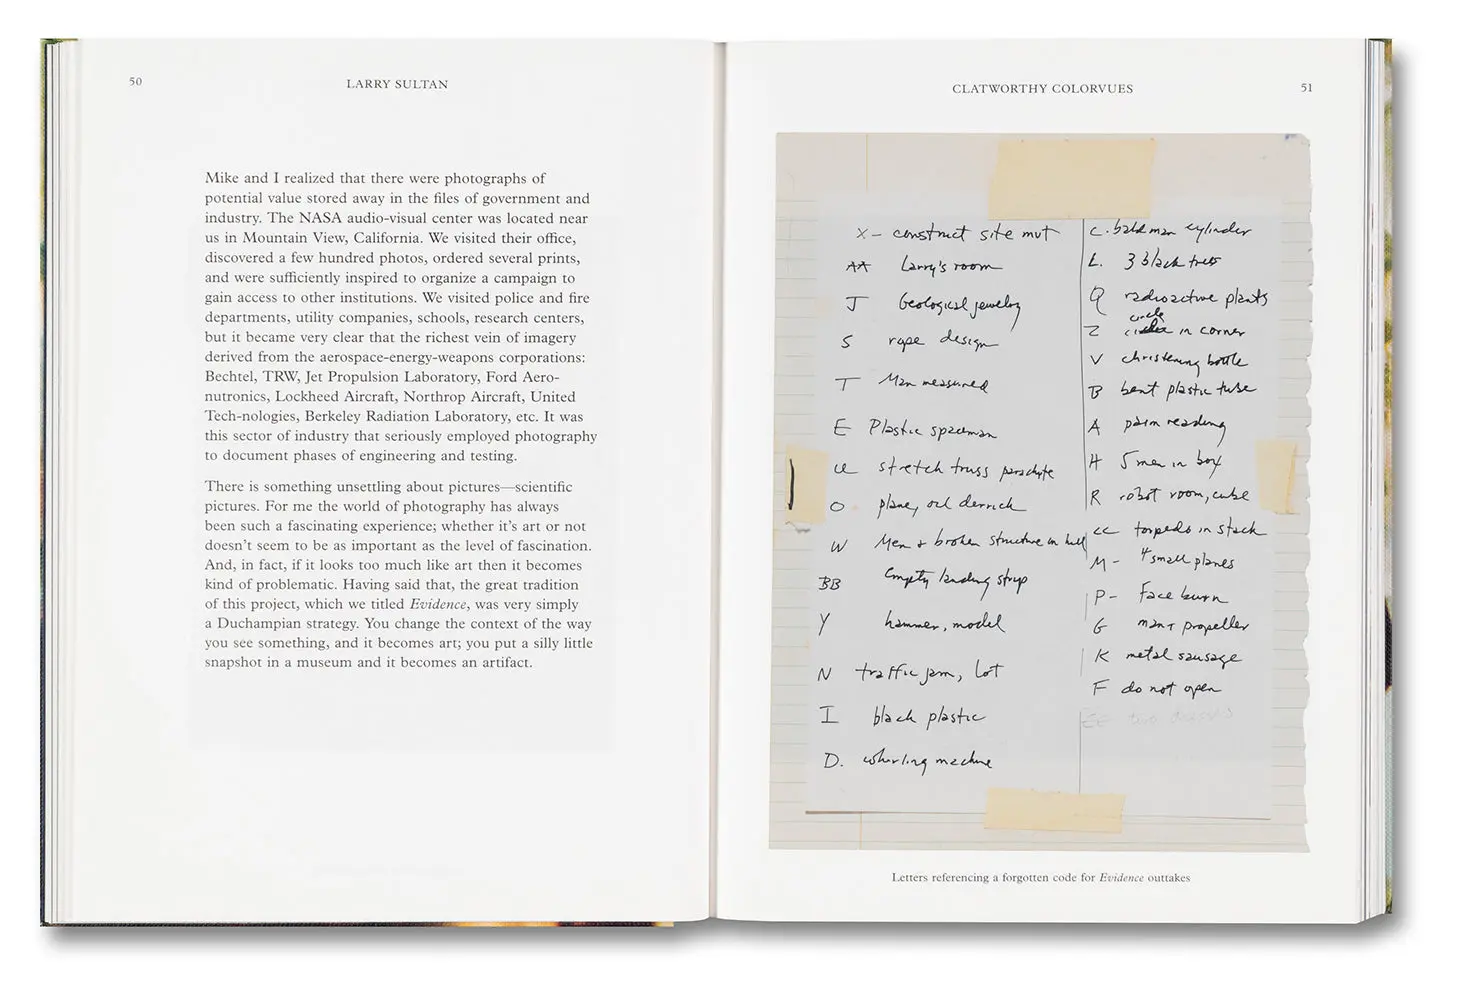 50
LARRY SULTAN
Mike and I realized that there were photographs of
potential value stored away in the files of government and
industry. The NASA audio-visual center was located near
us in Mountain View, California. We visited their office,
discovered a few hundred photos, ordered several prints,
and were sufficiently inspired to organize a campaign to
gain access to other institutions. We visited police and fire
departments, utility companies, schools, research centers,
but it became very clear that the richest vein of imagery
derived from the aerospace-energy-weapons corporations:
Bechtel, TRW, Jet Propulsion Laboratory, Ford Aero-
nutronics, Lockheed Aircraft, Northrop Aircraft, United
Tech-nologies, Berkeley Radiation Laboratory, etc. It was
this sector of industry that seriously employed photography
to document phases of engineering and testing.
There is something unsettling about pictures—scientific
pictures. For me the world of photography has always
been such a fascinating experience; whether it's art or not
doesn't seem to be as important as the level of fascination.
And, in fact, if it looks too much like art then it becomes
kind of problematic. Having said that, the great tradition
of this project, which we titled Evidence, was very simply
a Duchampian strategy. You change the context of the way
you see something, and it becomes art; you put a silly little
snapshot in a museum and it becomes an artifact.
CLATWORTHY COLORVUES
51
X – construct site mut
AA Larry's room
J Geological jewelry
S rope design
T Man measured
E Plastic spaceman
U stretch truss parachute
O plane, oil derrick
W Men + broken structure in hill
BB Empty landing strip
Y hammer, model
N traffic jam, lot
I black plastic
D. whirling machine
C. bald man cylinder
L. 3 black trees
Q radioactive plants
Z circle in corner
V christening bottle
B bent plastic tube
A palm reading
H 5 men in box
R robot room, cube
CC torpedo in stack
M – 4 small planes
P – Face burn
G man + propeller
K metal sausage
F do not open
EE two
Letters referencing a forgotten code for Evidence outtakes